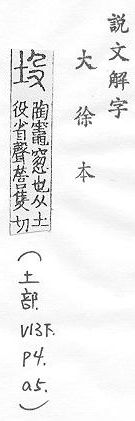 説文解字
大徐本
垼
陶竈窻也从土
役省聲營隻切
(土部.V13下.P4.a5.)